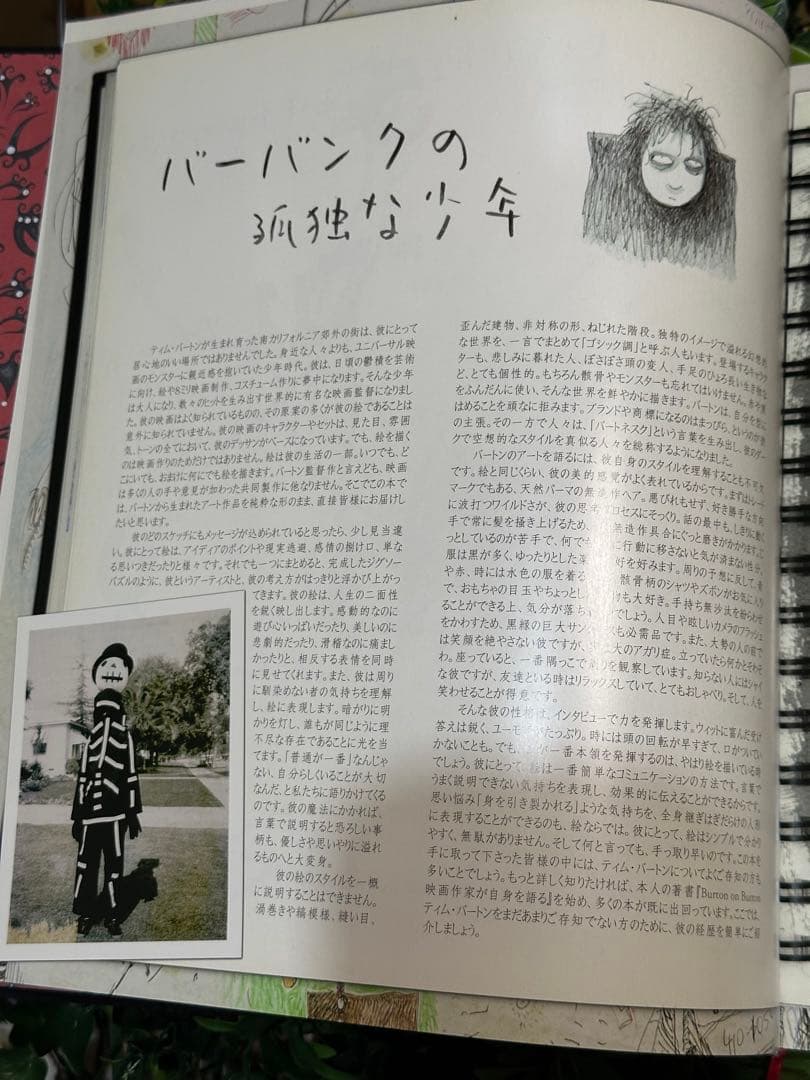 バーバンクの
孤独な少年
ティム・バートンが生まれ育った南カリフォルニア郊外の街は、彼にとって
居心地のいい場所ではありませんでした。身近な人々よりも、ユニバーサル映
画のモンスターに親近感を抱いていた少年時代。彼は、日頃の鬱積を芸術
に向け、絵や8ミリ映画制作、コスチューム作りに夢中になります。そんな少年
は大人になり、数々のヒットを生み出す世界的に有名な映画監督になりまし
た。彼の映画はよく知られているものの、その原案の多くが彼の絵であることは
意外に知られていません。彼の映画のキャラクターやセットは、見た目、雰囲
気、トーンの全てにおいて、彼のデッサンがベースになっています。でも、絵を描く
のは映画作りのためだけではありません。絵は彼の生活の一部。いつでも、ど
こにいても、おまけに何にでも絵を描きます。バートン監督作と言えども、映画
は多くの人の手や意見が加わった共同製作に他なりません。そこでこの本で
は、バートンから生まれたアート作品を純粋な形のまま、直接皆様にお届けし
たいと思います。
彼のどのスケッチにもメッセージが込められていると思ったら、少し見当違
い。彼にとって絵は、アイディアのポイントや現実逃避、感情の捌け口、単な
る思いつきだったりと様々です。それでも一つにまとめると、完成したジグソー
パズルのように、彼というアーティストと、彼の考え方がはっきりと浮かび上がっ
てきます。彼の絵は、人生の二面性
を鋭く映し出します。感動的なのに
遊び心いっぱいだったり、美しいのに
悲劇的だったり、滑稽なのに痛まし
かったりと、相反する表情を同時
に見せてくれます。また、彼は周り
に馴染めない者の気持ちを理解
し、絵に表現します。暗がりに明
かりを灯し、誰もが同じように理
不尽な存在であることに光を当
てます。「普通が一番」なんじゃ
ない、自分らしくいることが大切
なんだ、と私たちに語りかけてくる
のです。彼の魔法にかかれば、
言葉で説明すると恐ろしい事
柄も、優しさや思いやりに溢れ
るものへと大変身。
彼の絵のスタイルを一概
に説明することはできません。
渦巻きや縞模様、縫い目、
歪んだ建物、非対称の形、ねじれた階段。独特のイメージで溢れる幻想的
な世界を、一言でまとめて「ゴシック調」と呼ぶ人もいます。登場するキャラク
ターも、悲しみに暮れた人、ぼさぼさ頭の変人、手足のひょろ長い生き物な
ど、とても個性的。もちろん骸骨やモンスターも忘れてはいけません。赤や黒
をふんだんに使い、そんな世界を鮮やかに描きます。バートンは、自分を型に
はめることを頑なに拒みます。ブランドや商標になるのはまっぴら、というのが彼
の主張。その一方で人々は、「バートネスク」という言葉を生み出し、彼のダー
クで空想的なスタイルを真似る人々を総称するようになりました。
バートンのアートを語るには、彼自身のスタイルを理解することも不可欠
です。絵と同じくらい、彼の美的感覚がよく表れているからです。まずはトレード
マークでもある、天然パーマの無造作ヘア。悪びれもせず、好き勝手な方向
に波打つワイルドさが、彼の思考プロセスにそっくり。話の最中も、しきりに動く
手で常に髪を掻き上げるため、無造作具合にぐっと磨きがかかります。じ
っとしているのが苦手で、何でも に行動に移さないと気が済まない性分。
服は黒が多く、ゆったりとした 好を好みます。周りの予想に反して、青
や赤、時には水色の服を着る 骸骨柄のシャツやズボンがお気に入り
で、おもちゃの目玉やちょっとし も大好き。手持ち無沙汰を紛らわせ
ることができる上、気分が落ち でしょう。人目や眩しいカメラのフラッシュ
をかわすため、黒縁の巨大サン スも必需品です。また、大勢の人の前で
は笑顔を絶やさない彼ですが、 大のアガリ症。立っていたら何かとそわそ
わ。座っていると、一番隅っこで 周りを観察しています。知らない人にはシャイ
な彼ですが、友達といる時はリラックスしていて、とてもおしゃべり。そして、人を
笑わせることが得意です。
そんな彼の性格は、インタビューで力を発揮します。ウィットに富んだ受け
答えは鋭く、ユーモアがたっぷり。時には頭の回転が早すぎて、口がついてい
かないことも。でも、彼が一番本領を発揮するのは、やはり絵を描いている時
でしょう。彼にとって、絵は一番簡単なコミュニケーションの方法です。言葉で
うまく説明できない気持ちを表現し、効果的に伝えることができるからです。
思い悩み「身を引き裂かれる」ような気持ちを、全身継ぎはぎだらけの人形
に表現することができるのも、絵ならでは。彼にとって、絵はシンプルで分かり
やすく、無駄がありません。そして何と言っても、手っ取り早いのです。この本を
手に取って下さった皆様の中には、ティム・バートンについてよくご存知の方も
多いことでしょう。もっと詳しく知りたければ、本人の著書『Burton on Burton
映画作家が自身を語る』を始め、多くの本が既に出回っています。ここでは、
ティム・バートンをまだあまりご存知でない方のために、彼の経歴を簡単にご紹
介しましょう。